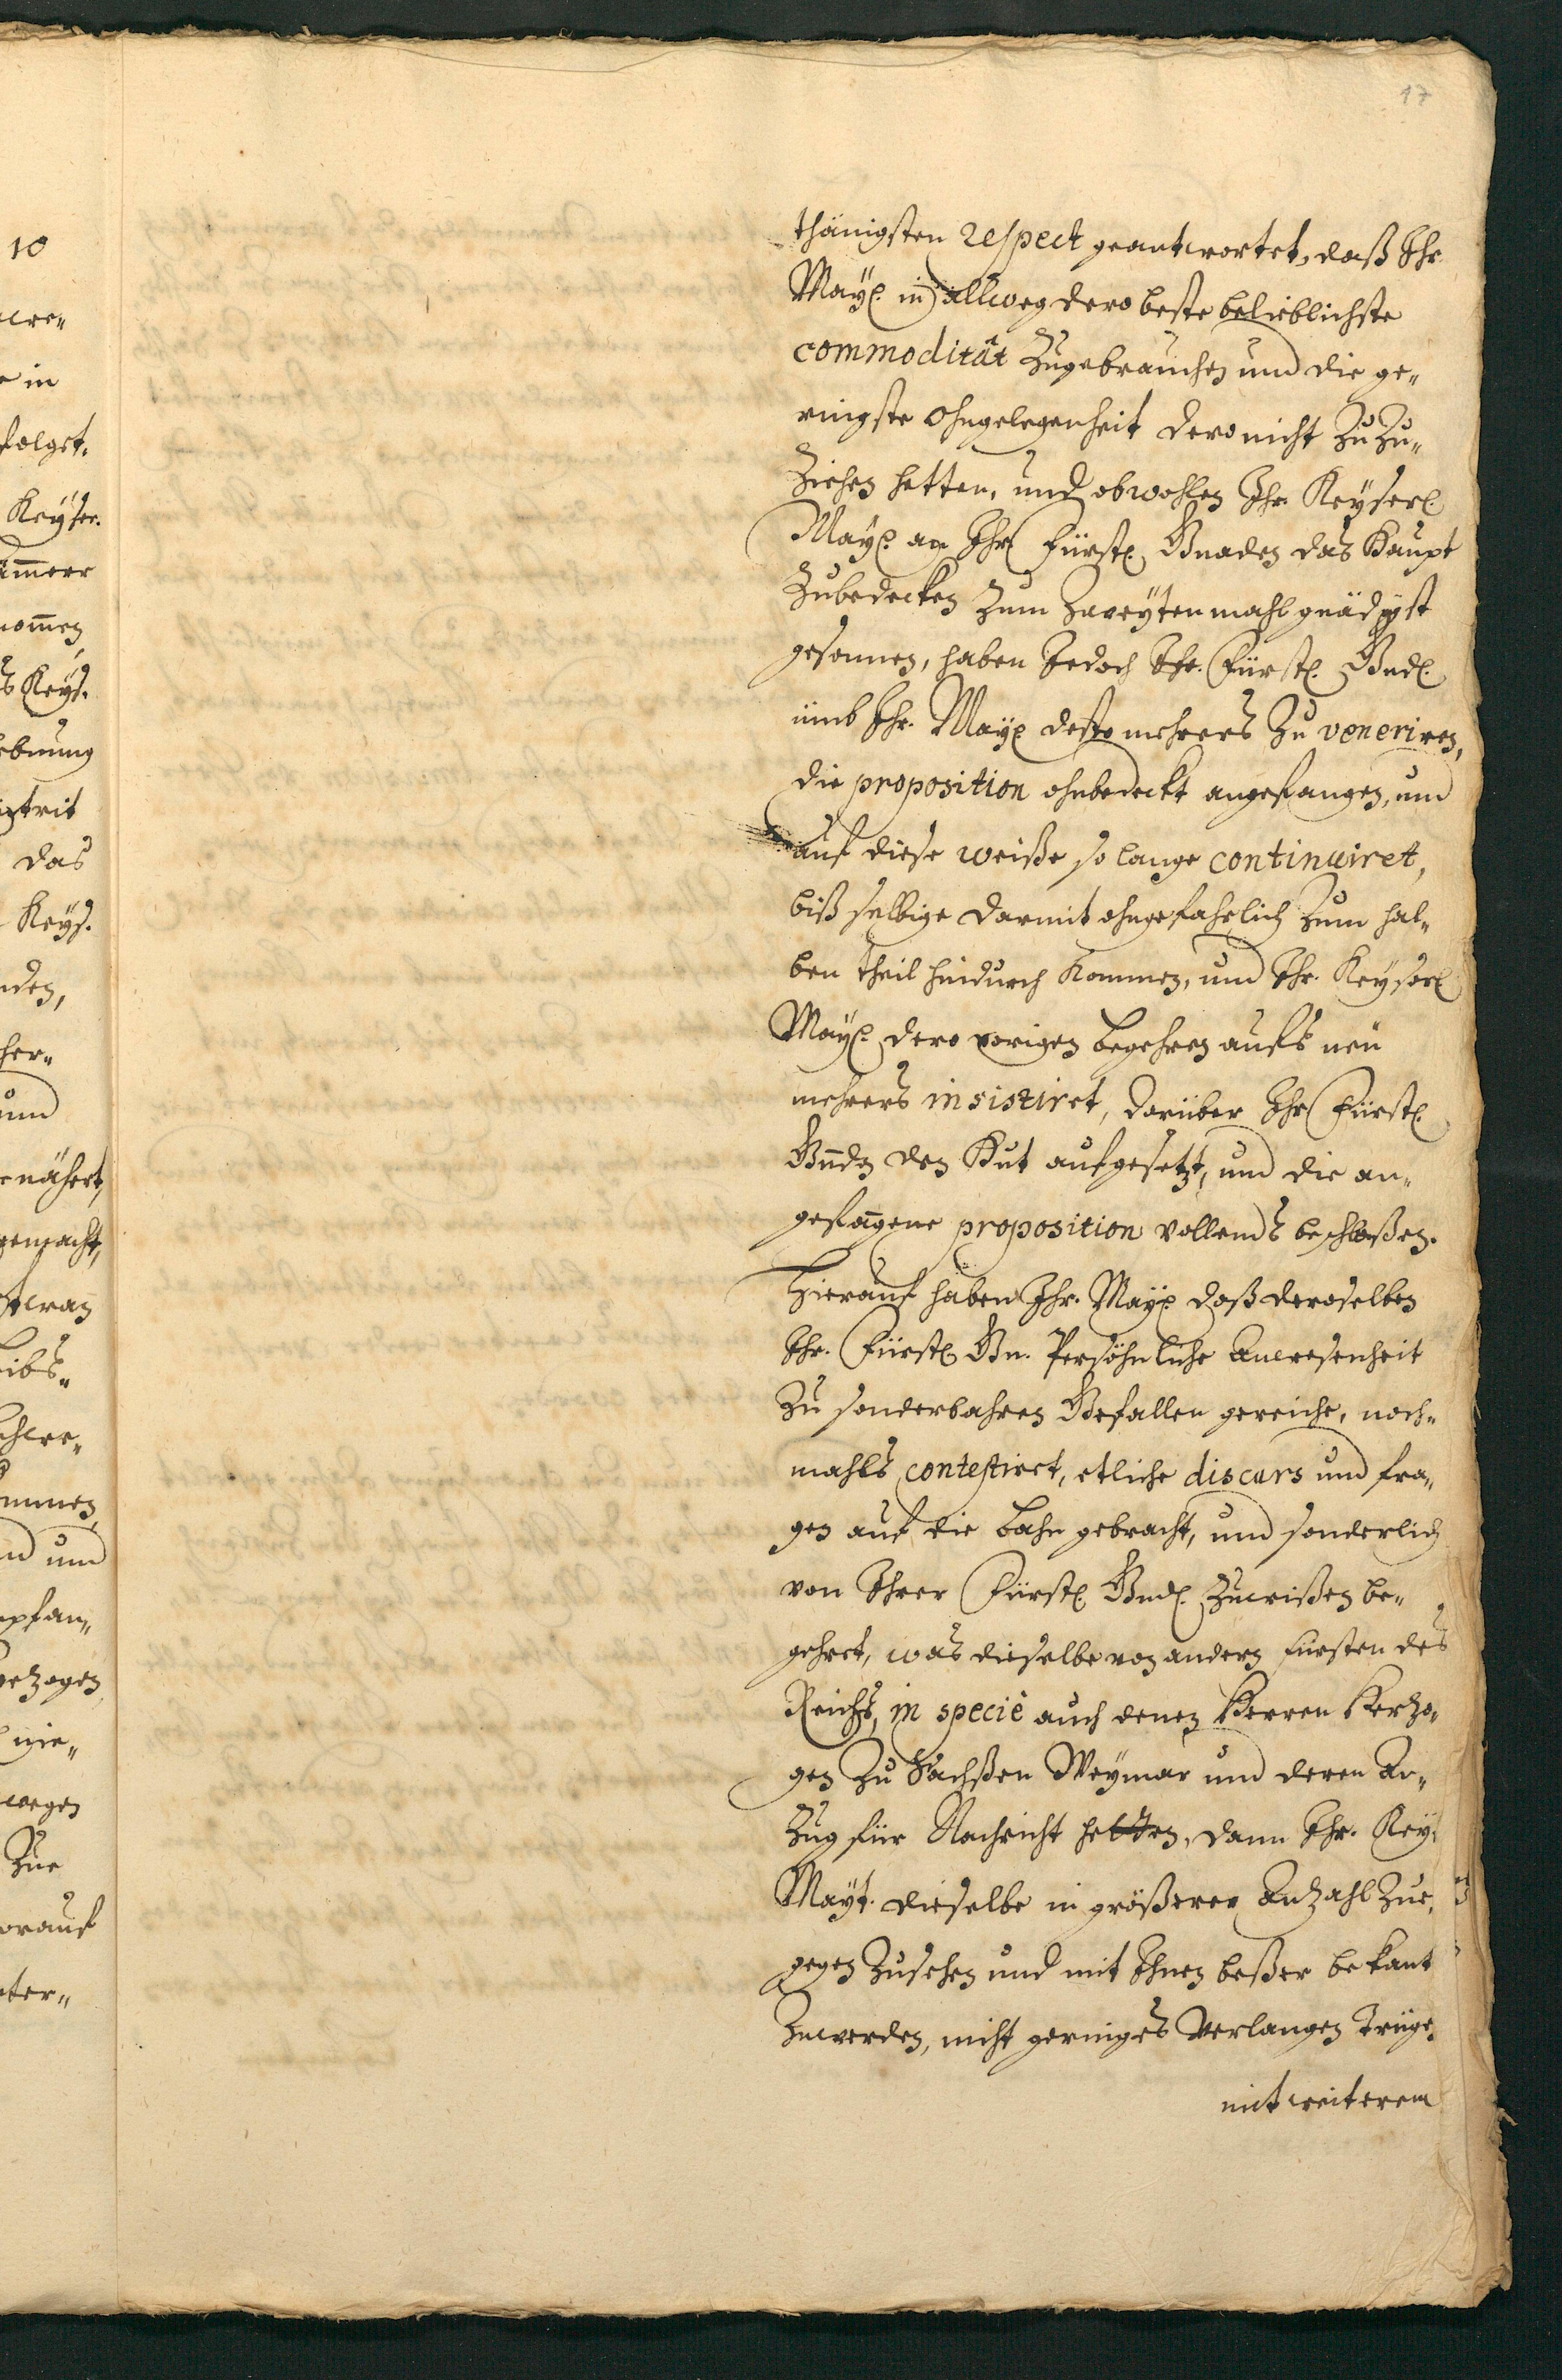 17
thänigsten respect geantwortet, daß Ihr.
May. in allweg dero beste belieblichste
commodität Zugebrauchen und die ge„
ringste Ohngelegenheit dero nicht Zu Zu„
Ziehen hetten, und obwohlen Ihr. Keyserl.
May. an Ihr Fürstl. Gnaden das Haupt
Zubedecken Zum Zweyten mahl gnädigst
gesonnen, haben Jedoch Ihr. Fürstl. Gnd.
umb Ihr. May. desto mehrers Zu veneriren,
die proposition ohnbedeckt angefangen, und
auf diese weiße so lange continuiret,
biß selbige darmit ohngefahrlich Zum hal„
ben theil hindurch kommen, und Ihr. Keyserl.
May. dero vorigen begehren aufs neu
mehrers insistiret, darüber Ihr Fürstl.
Gnndn den Hut aufgesetzt, und die an„
gefangene proposition vollends beschloßen.
Hierauf haben Ihr. May. daß deroselben
Ihr. Fürstl. Gn. Persöhnliche Anwesenheit
Zu sonderbahren Gefallen gereiche, noch„
mahls contestiret, etliche discurs und fra„
gen auf die bahn gebracht, und sonderlich
von Ihrer Fürstl. Gnd. Zuwißen be„
gehret, was dieselbe von andern Fürsten des
Reichs, in specie auch denen Herren Hertzo„
gen Zu Sachßen Weymar und deren An„
Zug für Nachricht hetten, dann Ihr. Key.
Mayt. dieselbe in größerer Anzahl Zue„
gegen Zusehen und mit Ihnen beßer bekant
Zuwerden, nicht geringes Verlangen trüge,
mit weiterem
10
e in
folget.
Keyser.
ammer
nommen,
s Keys.
das
Keys.
nden,
her„
und
nähert,
gemacht,
eibs„
ommen,
und
mpfan„
gezogen
nie„
wegen
Zue
orauf
ter„